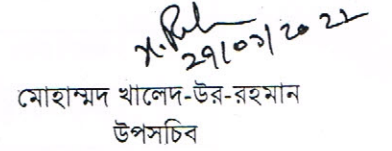 29/03/2022
মোহাম্মদ খালেদ-উর-রহমান
উপসচিব